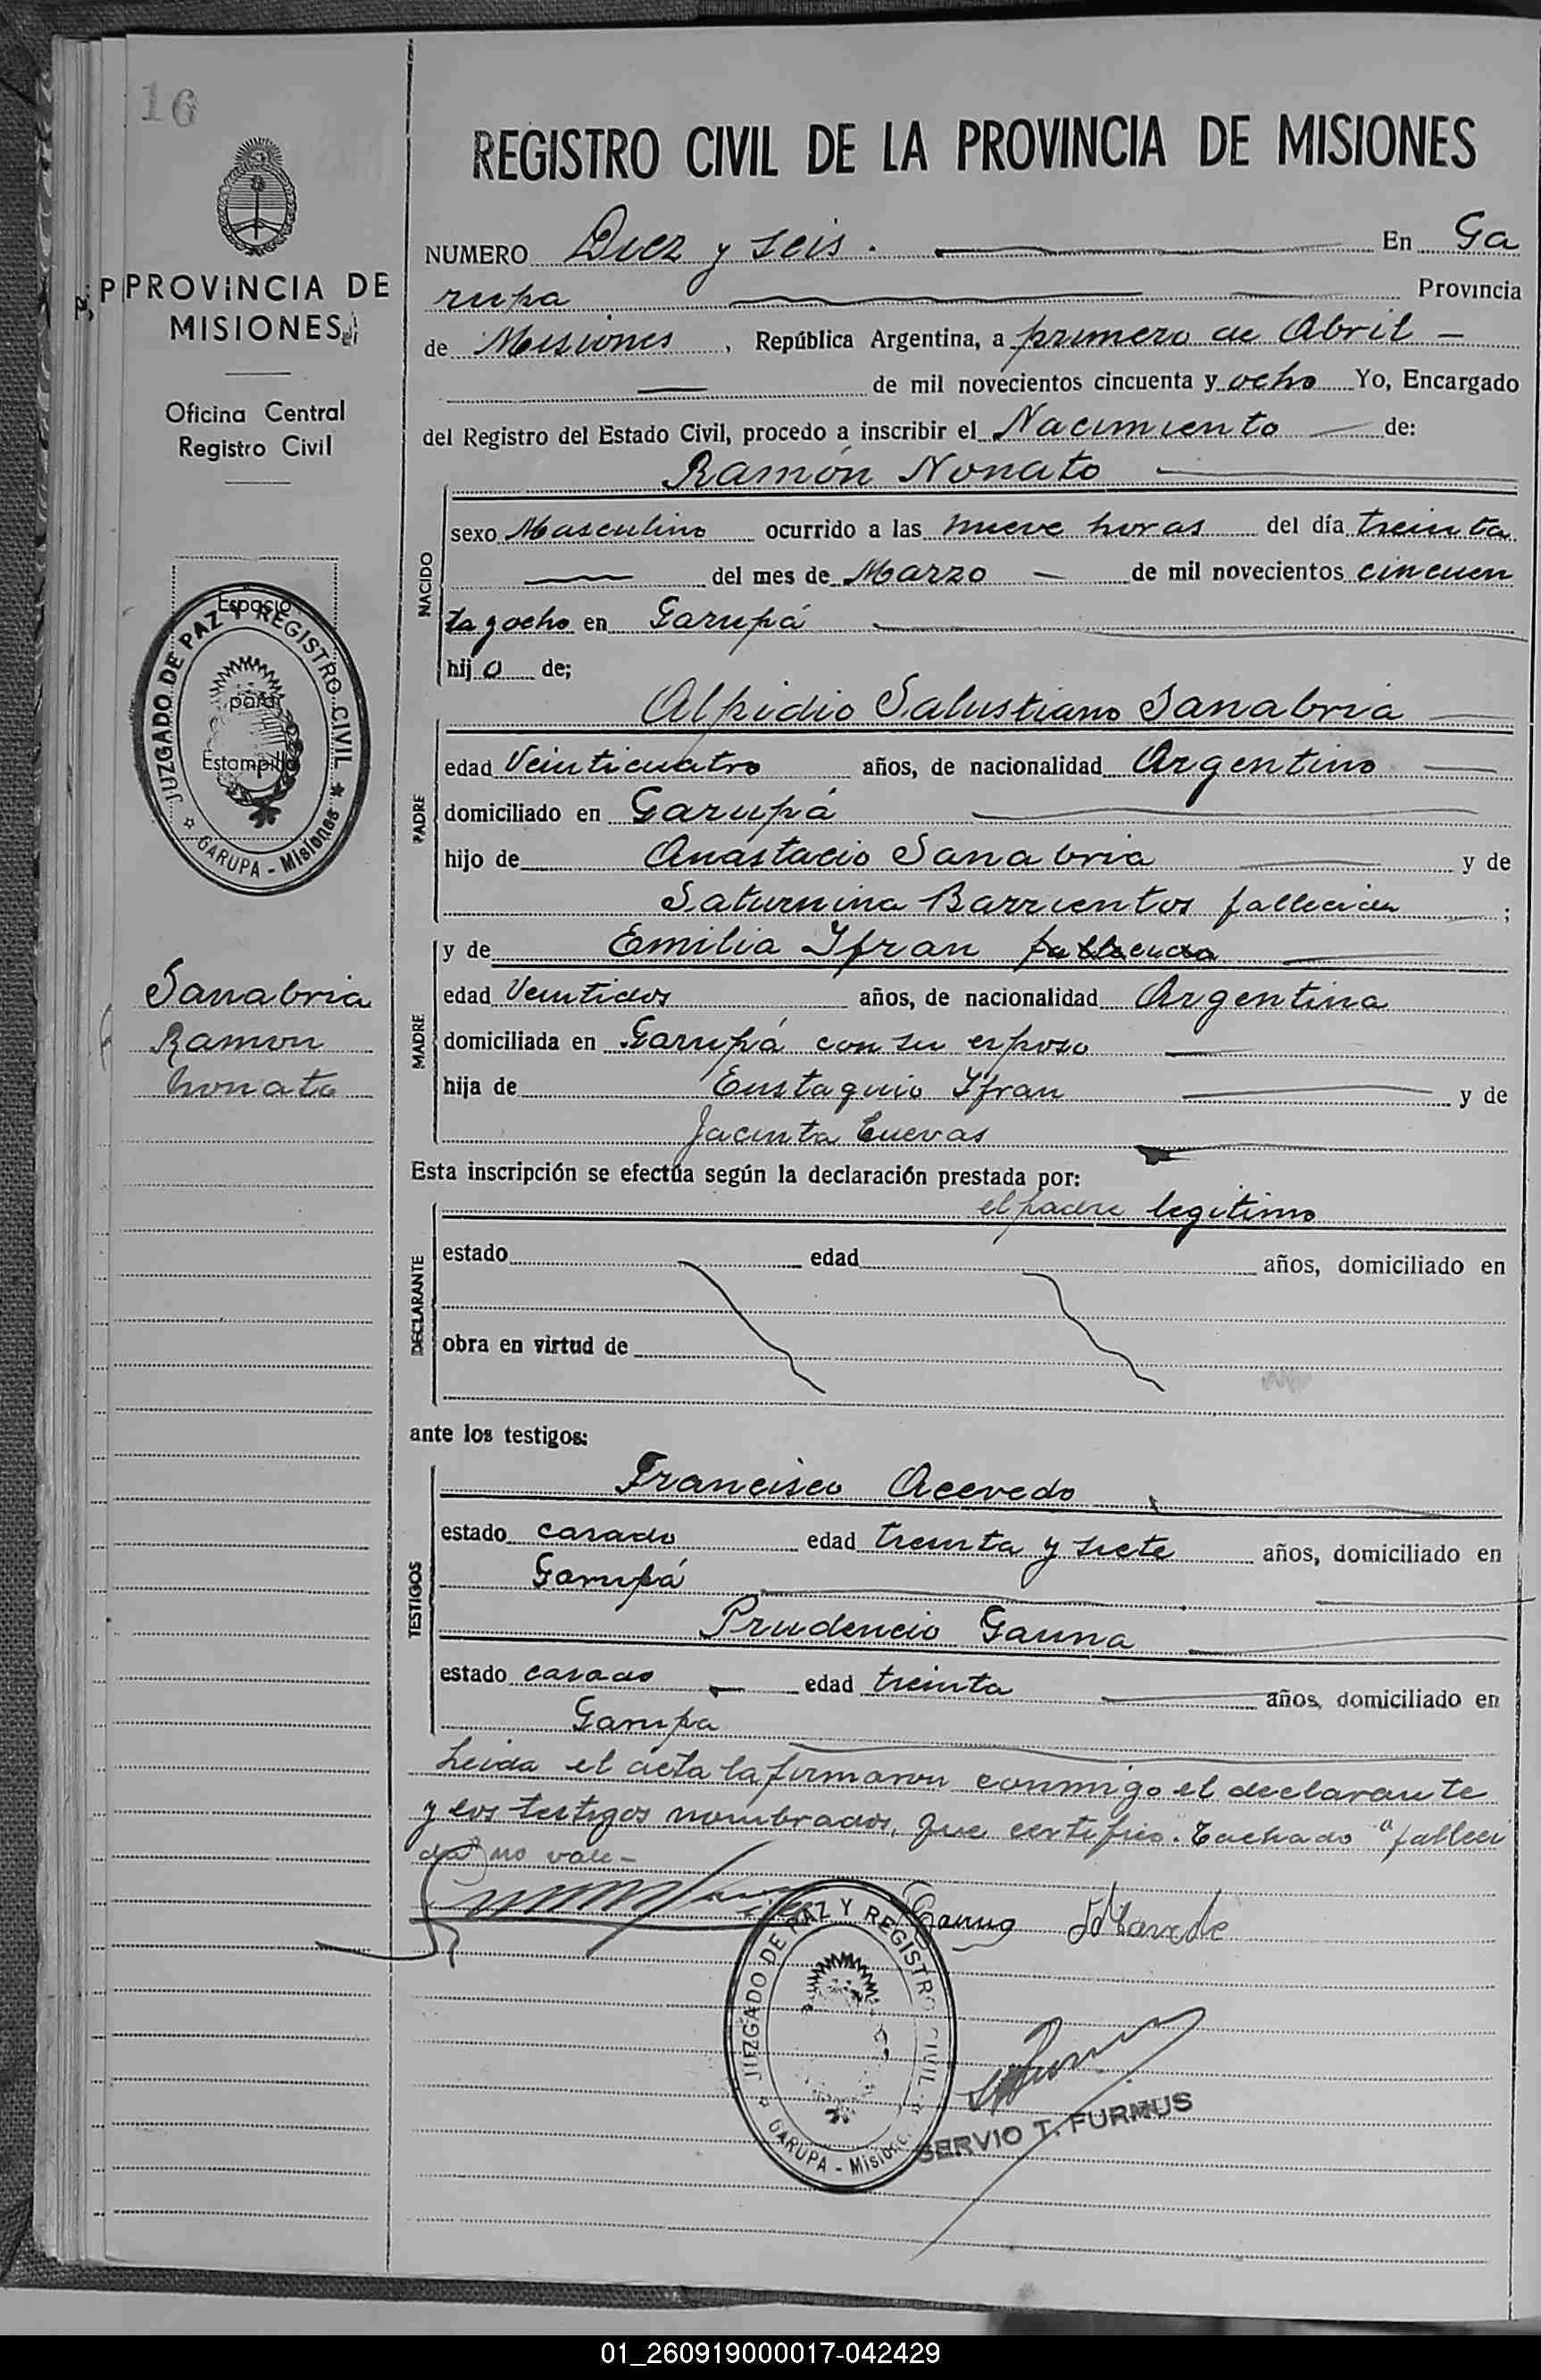 16
REGISTRO CIVIL DE LA PROVINCIA DE MISIONES
PROVINCIA DE
MISIONES
Oficina Central
Registro Civil
Espacio
para
Estampilla
JUZGADO DE PAZ Y REGISTRO CIVIL
GARUPA - Misiones
Sanabria
Ramon
Nonato
NUMERO Diez y seis. En Ga
rupa Provincia
de Misiones, República Argentina, a primero de Abril
de mil novecientos cincuenta y ocho Yo, Encargado
del Registro del Estado Civil, procedo a inscribir el Nacimiento de:
Ramón Nonato
NACIDO
sexo Masculino ocurrido a las nueve horas del día treinta
del mes de Marzo de mil novecientos cincuen
ta y ocho en Garupá
hijo de;
Alpidio Salustiano Sanabria
PADRE
edad Veinticuatro años, de nacionalidad Argentino
domiciliado en Garupá
hijo de Anastacio Sanabria y de
Saturnina Barrientos fallecida;
MADRE
y de Emilia Ifran fallecida
edad Veintidos años, de nacionalidad Argentina
domiciliada en Garupá con su esposo
hija de Eustaquio Ifran y de
Jacinta Cuevas
Esta inscripción se efectúa según la declaración prestada por:
el padre legitimo
DECLARANTE
estado edad años, domiciliado en
obra en virtud de
ante los testigos:
TESTIGOS
Francisco Acevedo
estado casado edad treinta y siete años, domiciliado en
Garupá
Prudencio Gauna
estado casado edad treinta años, domiciliado en
Garupa
Leida el acta la firmaron conmigo el declarante
y los testigos nombrados, que certifico. Tachado "falleci
da" no vale-
JUZGADO DE PAZ Y REGISTRO CIVIL
GARUPA - Misiones
SERVIO T. FURMUS
01_260919000017-042429